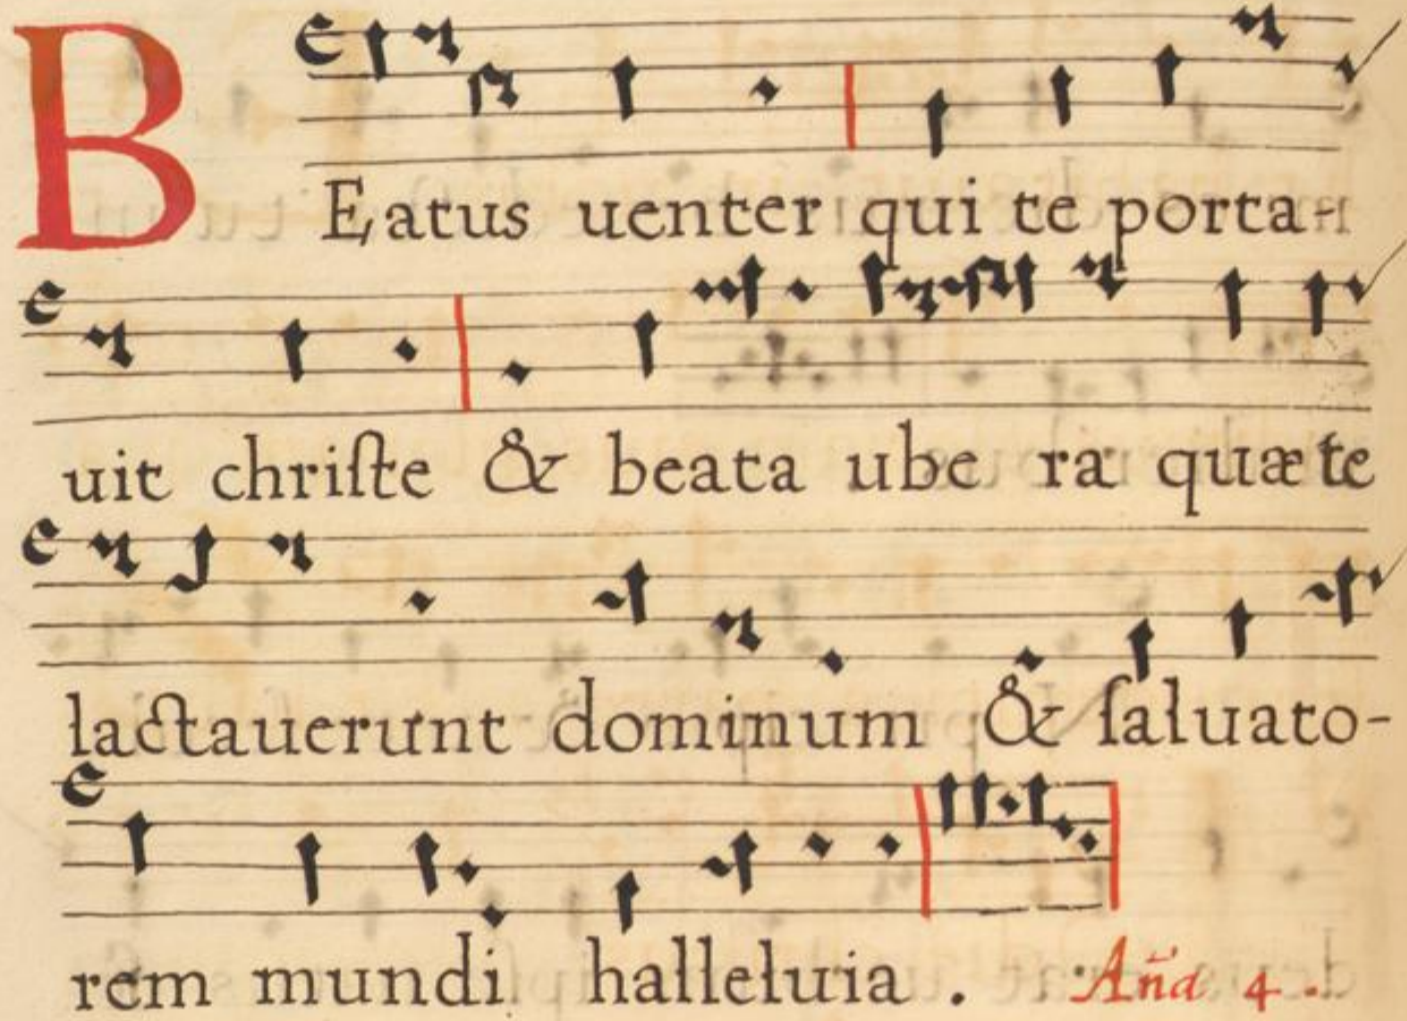 BEatus uenter qui te porta-
uit chriſte & beata ube ra quæ te
lactauerunt dominum & ſaluato-
rem mundi halleluia . Añа 4 .